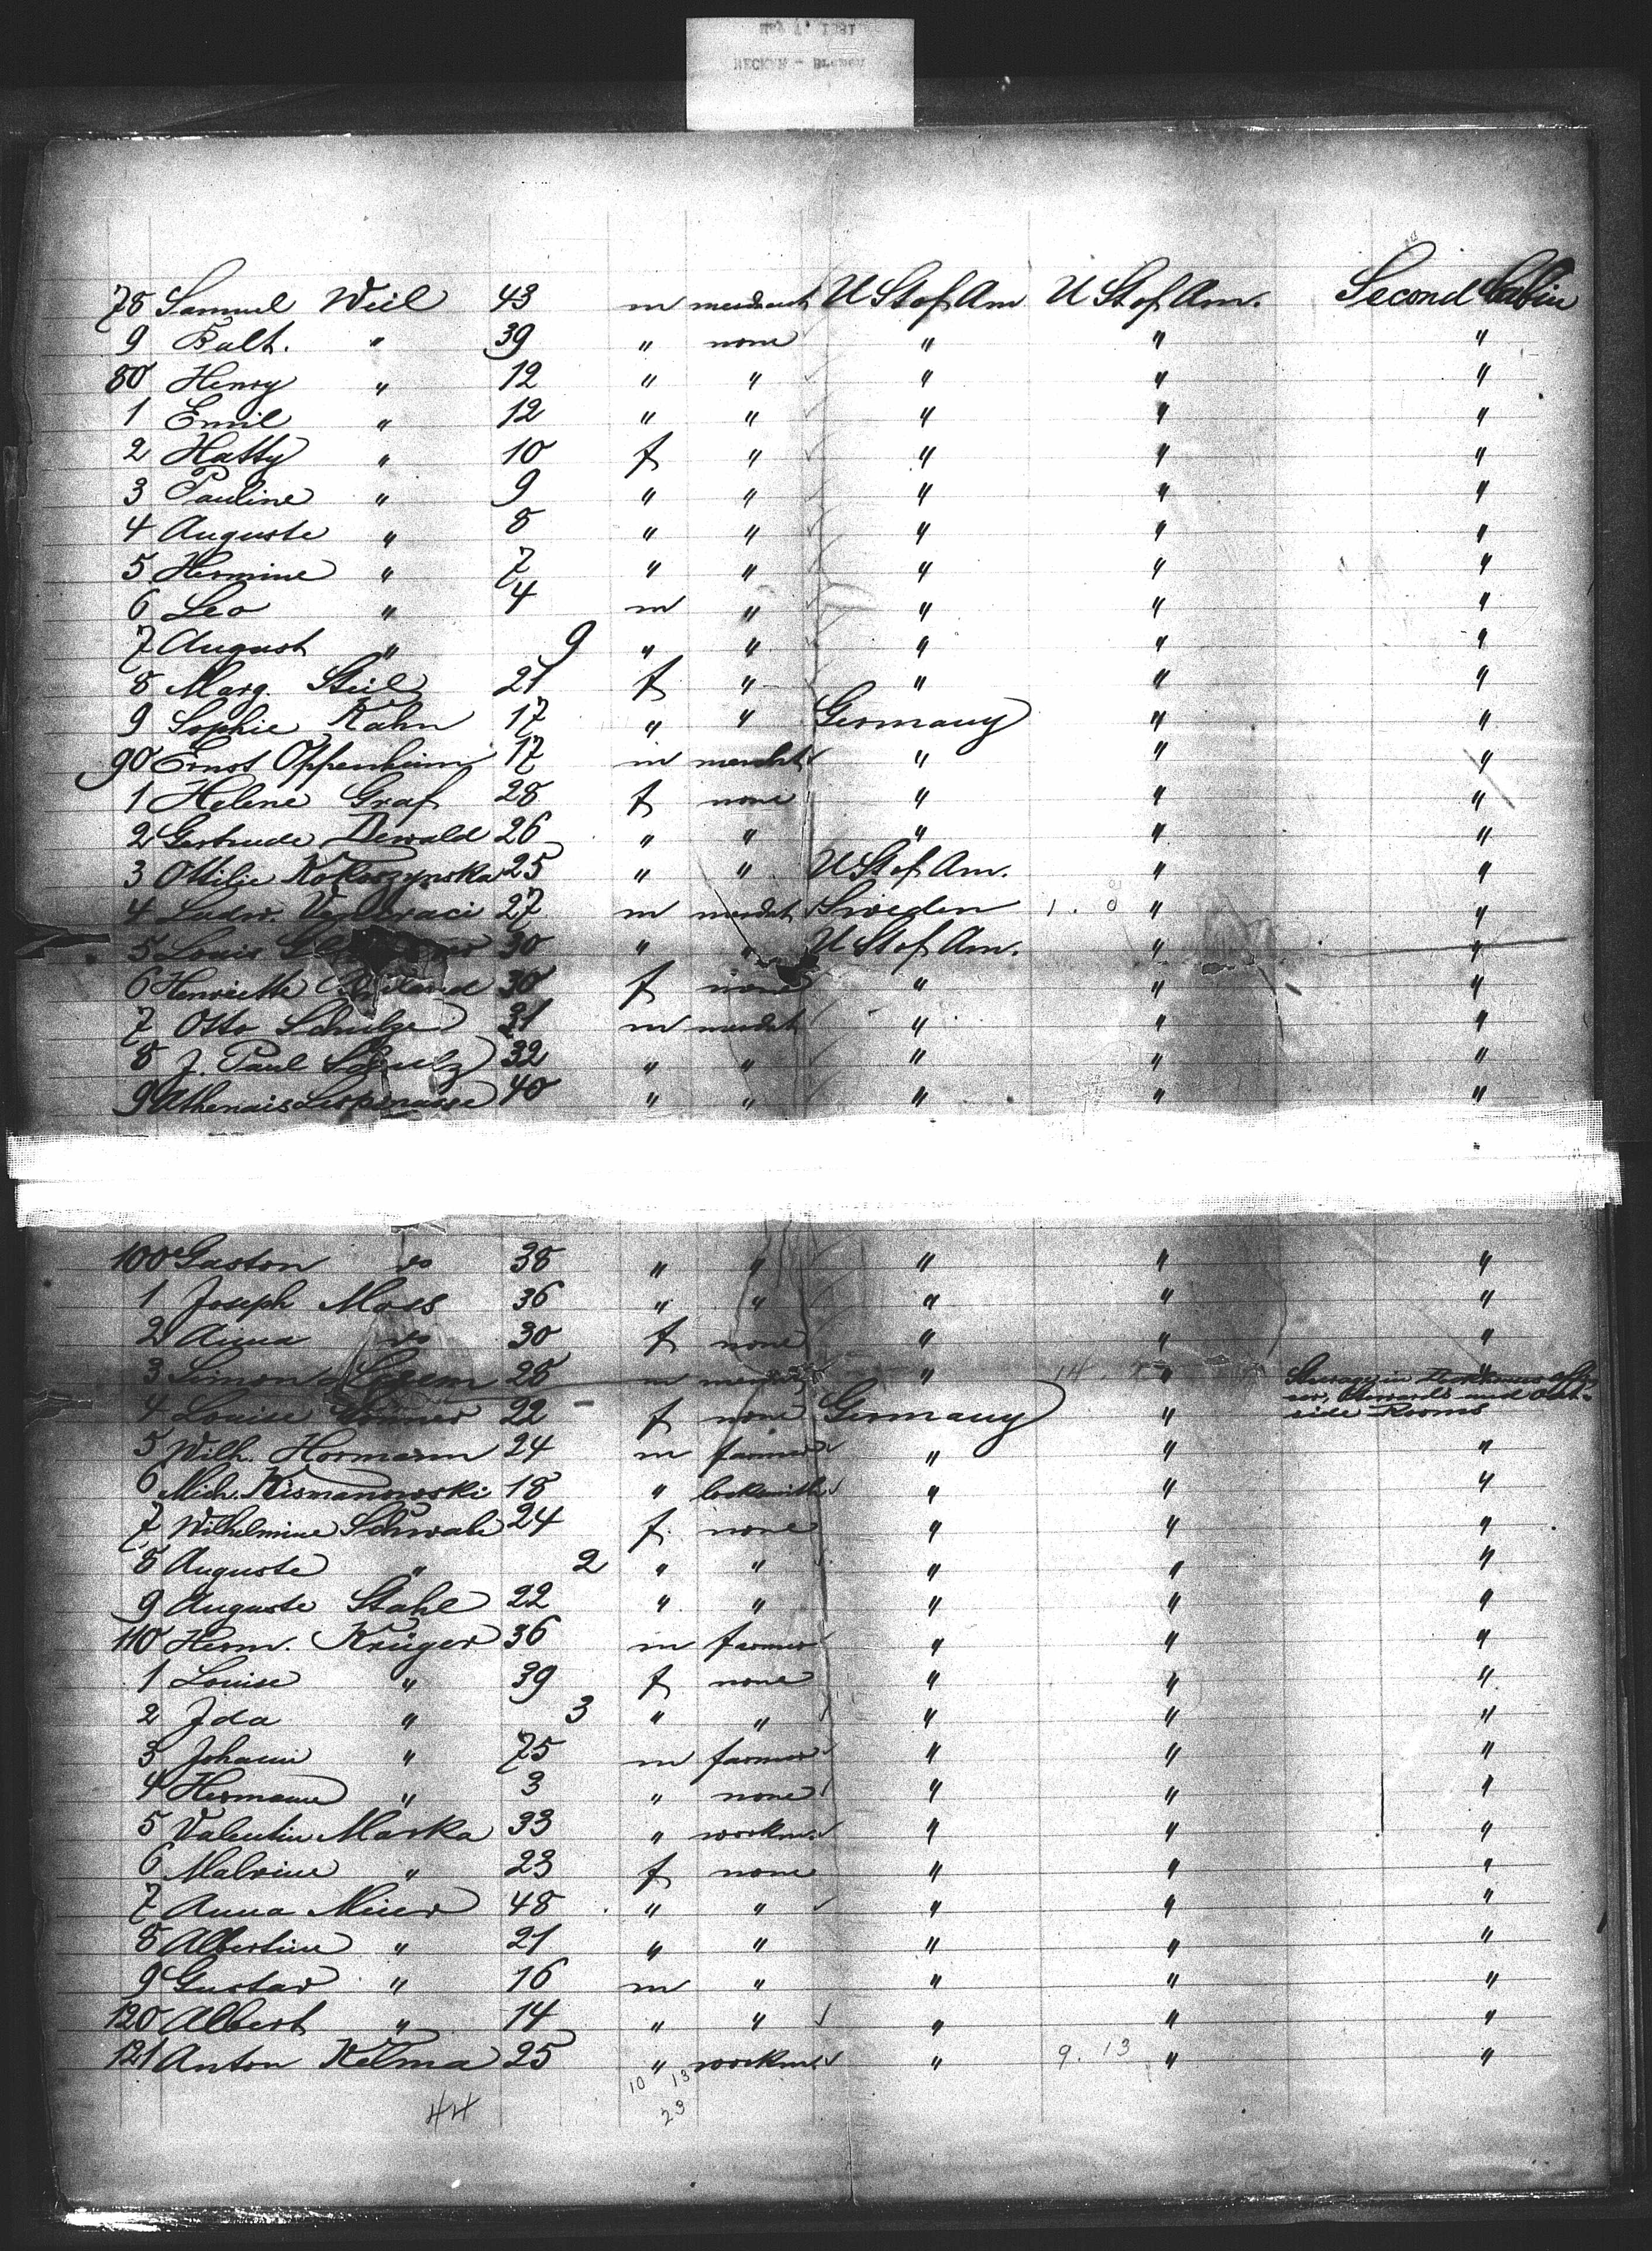 78 Samuel Weil 43 m merchant U St of Am U St of Am. Second Cabin
9 Balt. " 39 " none " " "
80 Henry " 12 " " " " "
1 Emil " 12 " " " " "
2 Hatty " 10 f " " " "
3 Pauline " 9 " " " " "
4 Auguste " 8 " " " " "
5 Hermine " 7 " " " " "
6 Leo " 4 m " " " "
7 August " 9 " " " " "
8 Marg. Steil 21 f " " " "
9 Sophie Kahn 17 " " Germany " "
90 Ernst Oppenheim 17 m mercht " " "
1 Helene Graf 28 f none " " "
2 Gertrude Dewald 26 " " " " "
3 Ottilie Kokoszynska 25 " " U St of Am. " "
4 Ludw. 27 m mercht Sweden " "
5 Louis 30 " " U St of Am. " "
6 Henriette 30 f none " " "
7 Otto Schulze 31 m mercht " " "
8 J. Paul Schulz 32 " " " " "
9 Athenais Lespinasse 40 " " " " "
100 Gaston do 38 " " " " "
1 Joseph Moss 36 " " " " "
2 Anna do 30 f none " " "
3 Simon 28 m " " "
Steerage in
and Out-
4 Louise 22 f none Germany " side Rooms
5 Wilh. Hormann 24 m farmer " " "
6 Mich. Kismanowski 18 " locksmith " " "
7 Wilhelmine Schwabe 24 f. none " " "
8 Auguste " 2 " " " " "
9 Auguste Stahl 22 " " " " "
110 Herm. Krüger 36 m farmer " " "
1 Louise " 39 f none " " "
2 Ida " 3 " " " " "
3 Johann " 75 m farmer " " "
4 Hermann " 3 " none " " "
5 Valentin Marka 33 " workm. " " "
6 Malvine " 23 f none " " "
7 Anna Meier 48 " " " " "
8 Albertine " 21 " " " " "
9 Gustav " 16 m " " " "
120 Albert " 14 " " " " "
121 Anton Kelma 25 " workm. " 9. 13 " "
10 13
44 23